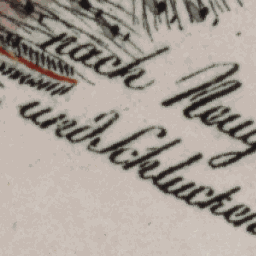 nach Neug
und Schlucken